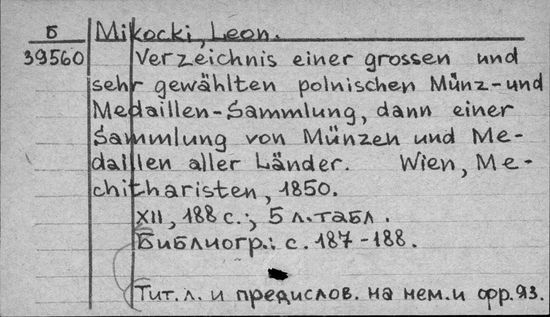 Б
39560
Mikocki, Leon.
Verzeichnis einer grossen und
sehr gewählten polnischen Münz-und
Medaillen-Sammlung, dann einer
Sammlung von Münzen und Me-
daillen aller Länder. Wien, Me-
chitharisten, 1850.
XII, 188 с.; 5 л. табл.
Библиогр.: с. 187-188.
Тит. л. и предислов. на нем. и фр. яз.